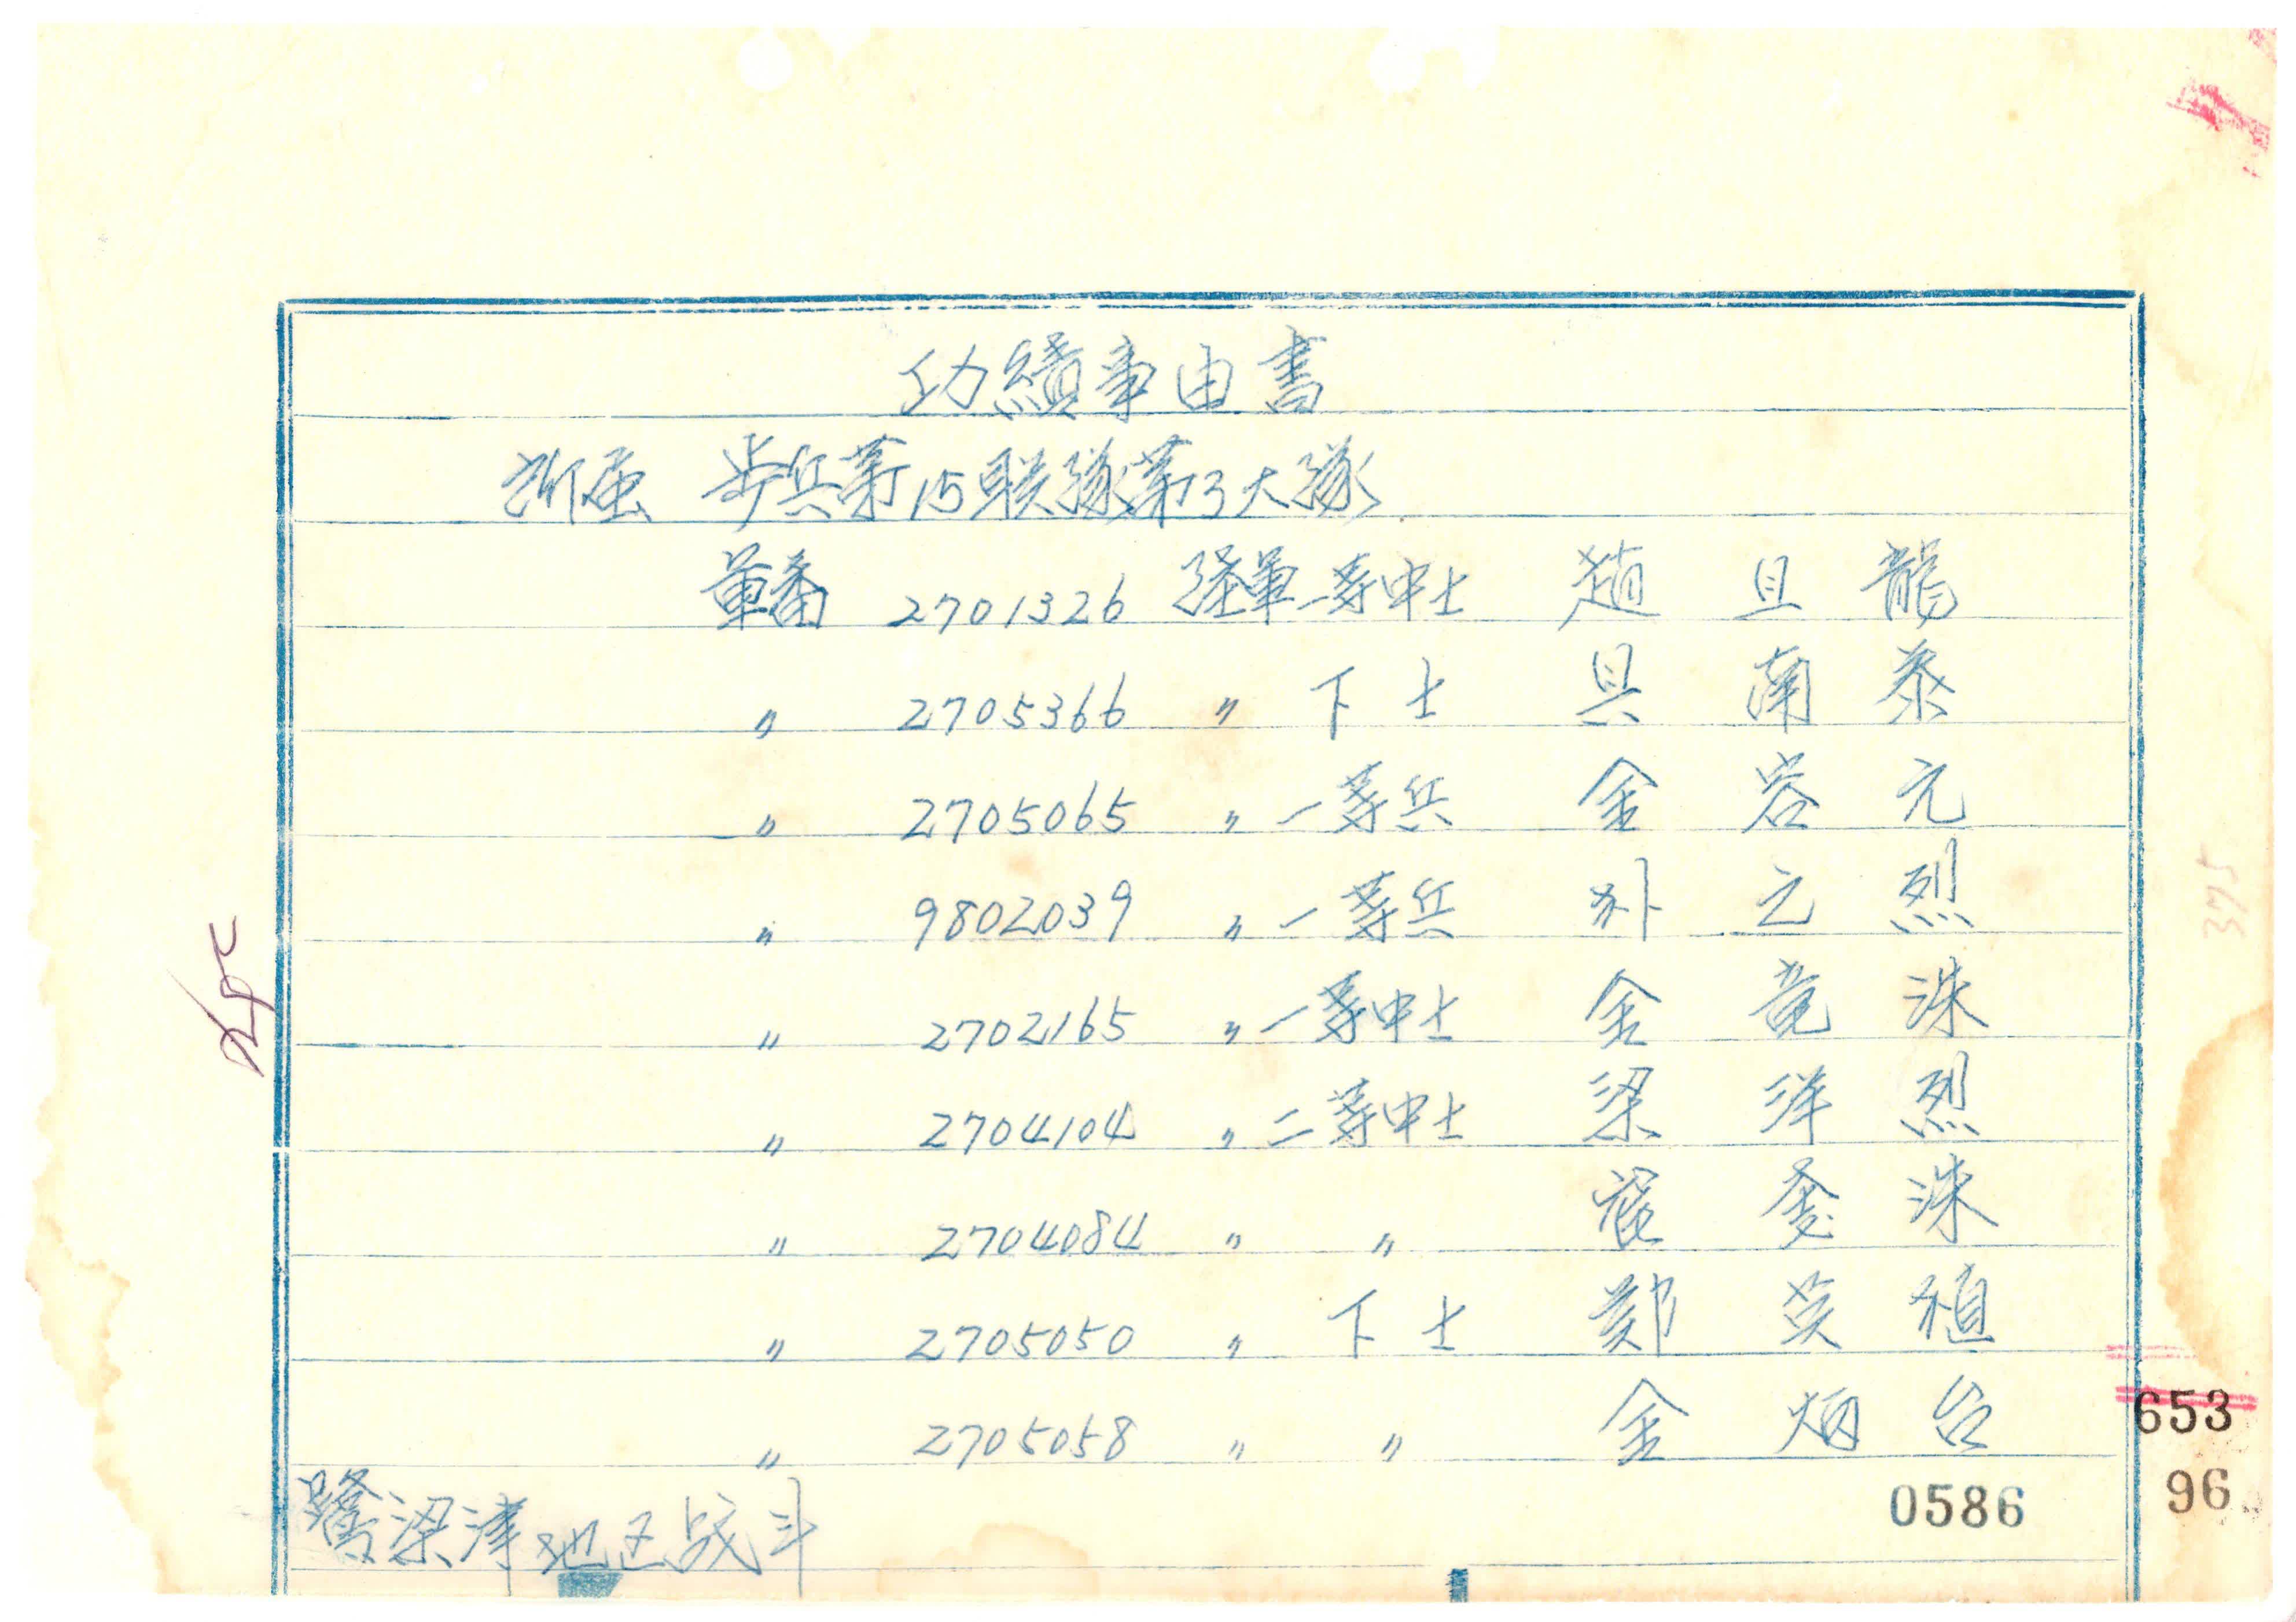 功績事由書
所属 步兵第15联隊第3大隊
軍番 2701326 陸軍二等中士 趙 且 龍
〃 2705366 〃 下士 具 南 泰
〃 2705065 〃 一等兵 金 容 元
〃 9802039 〃 一等兵 朴 之 烈
〃 2702165 〃 一等中士 金 竜 洙
〃 2704104 〃 二等中士 梁 洋 烈
〃 2704084 〃 〃 崔 洙
〃 2705050 〃 下士 鄭 英 植
〃 2705058 〃 〃 金 炳 台
鷺梁津地区战斗
0586
653
96
375